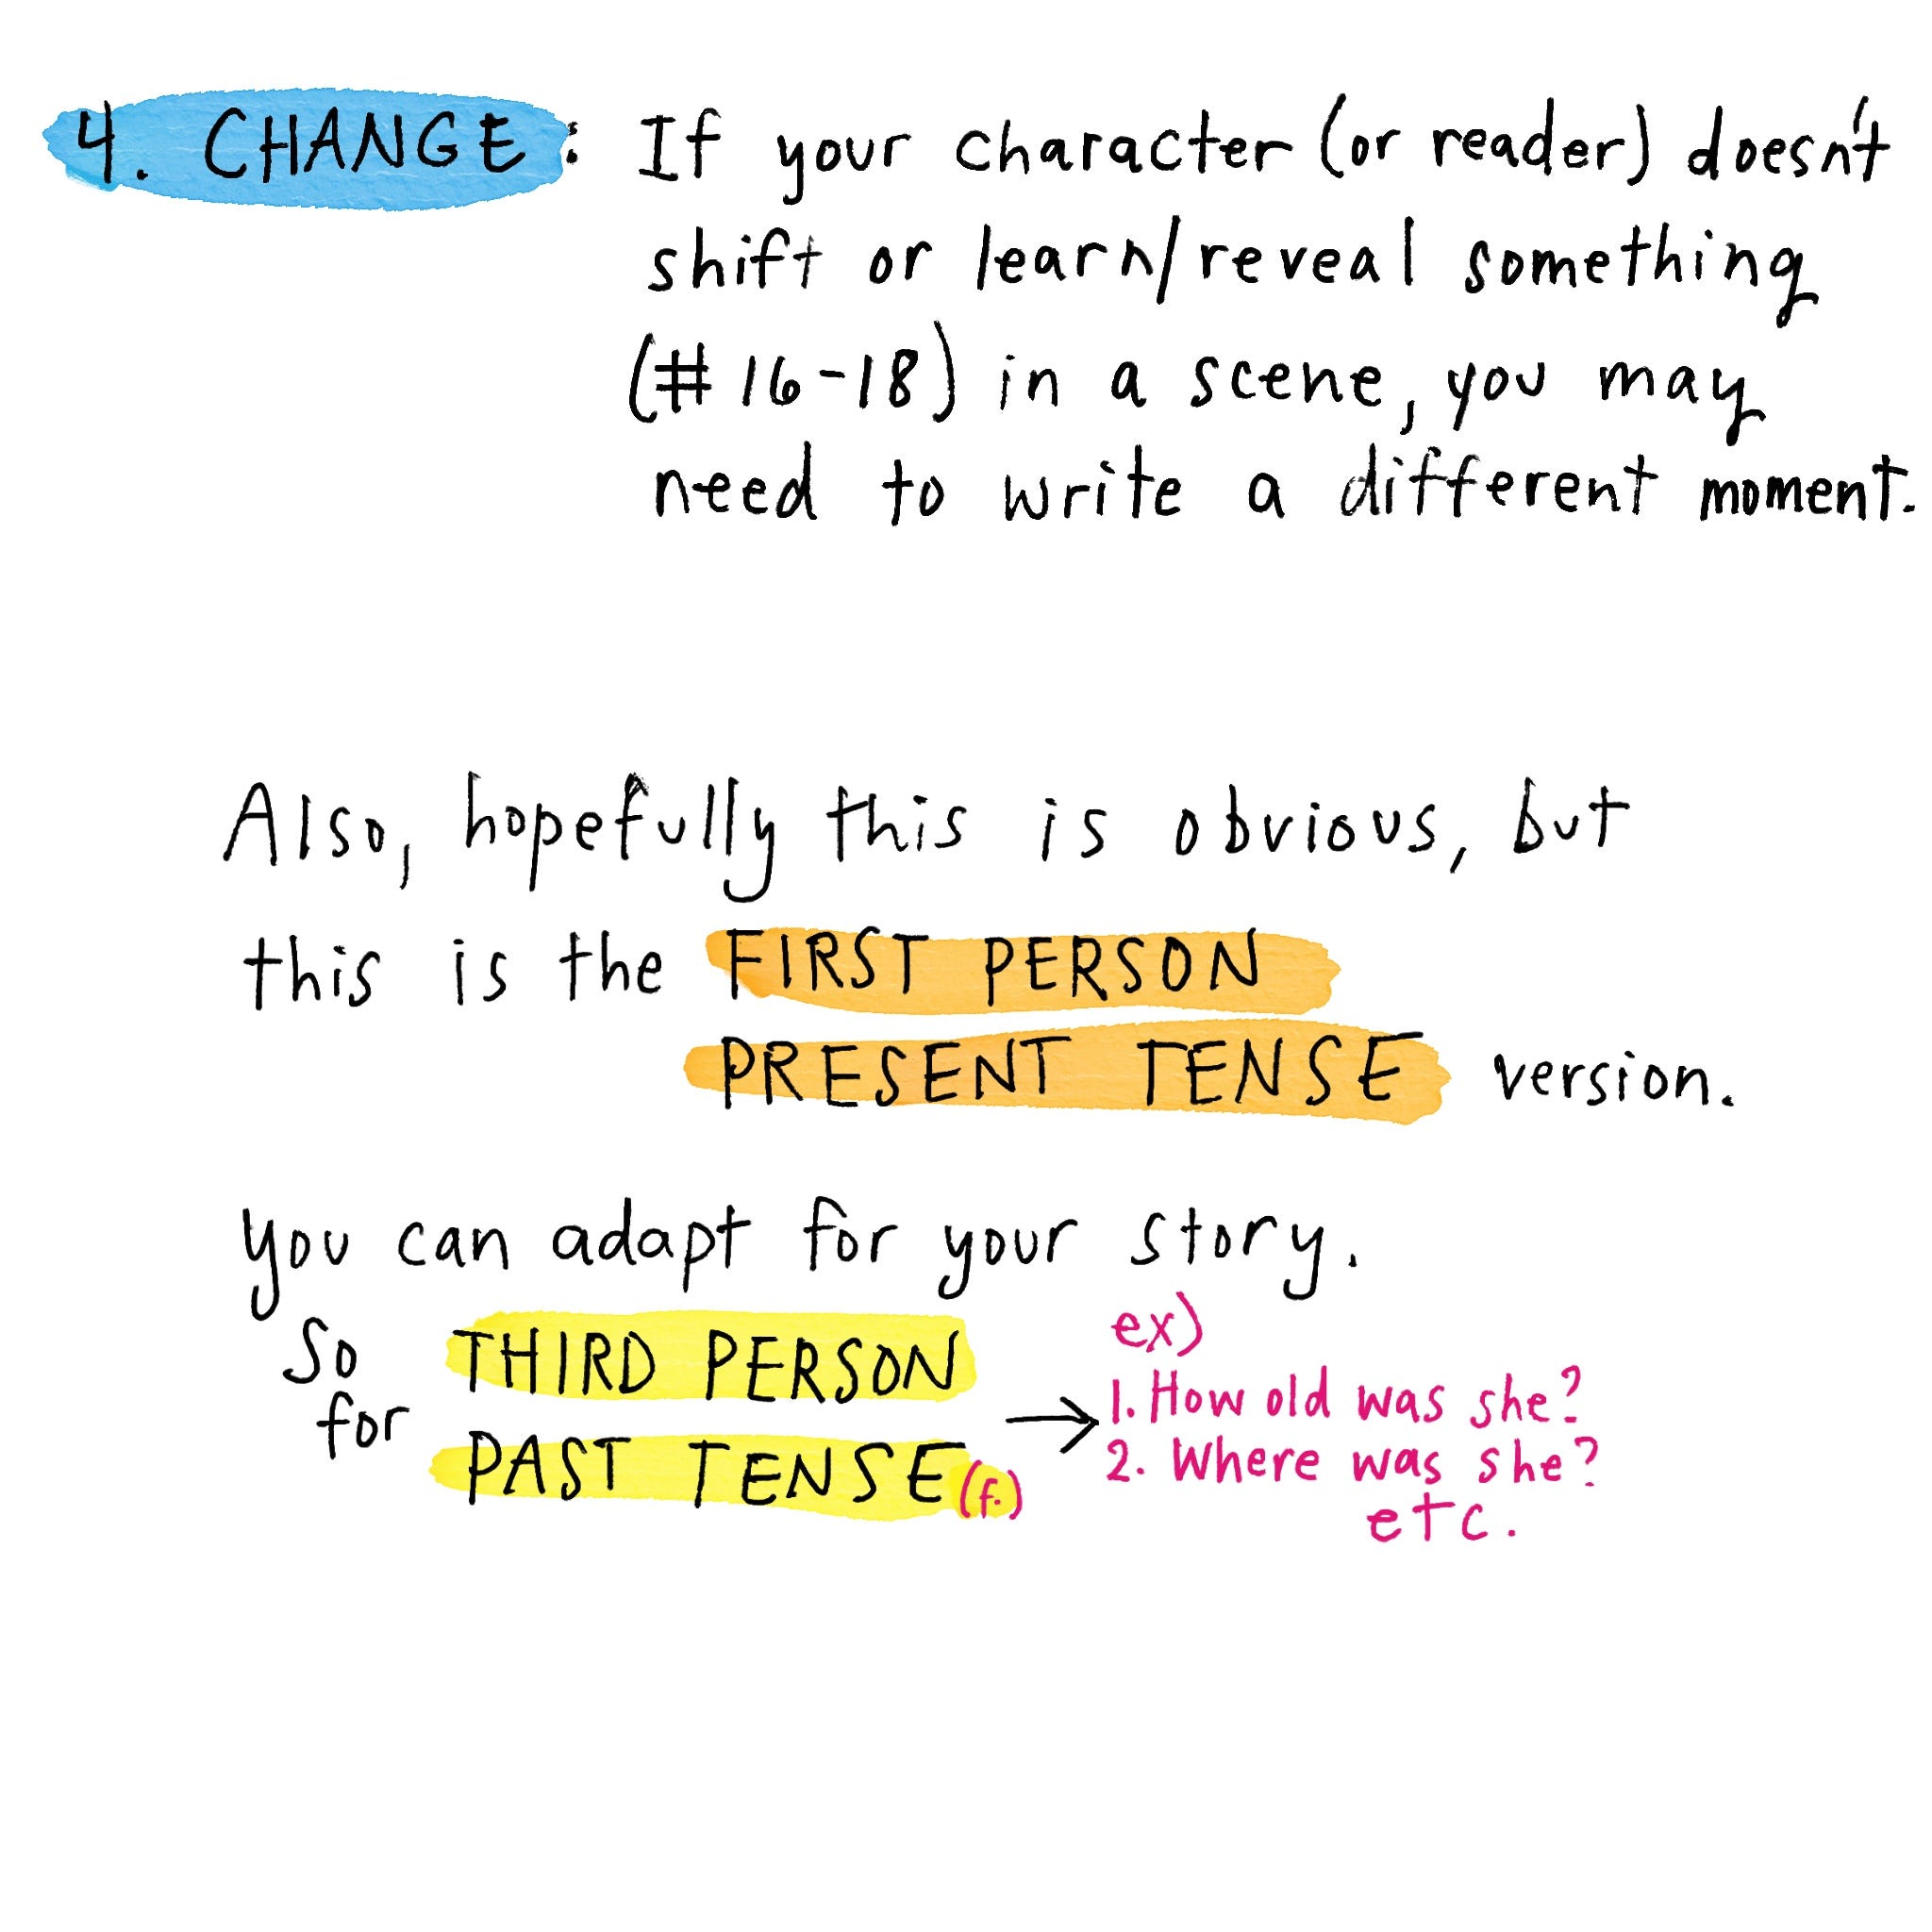 4. CHANGE: If your character (or reader) doesn't
shift or learn/reveal something
(#16-18) in a scene, you may
need to write a different moment.
Also, hopefully this is obvious, but
this is the FIRST PERSON
PRESENT TENSE version.
you can adapt for your story.
So THIRD PERSON
for PAST TENSE (f.) →
ex)
1. How old was she?
2. Where was she?
etc.